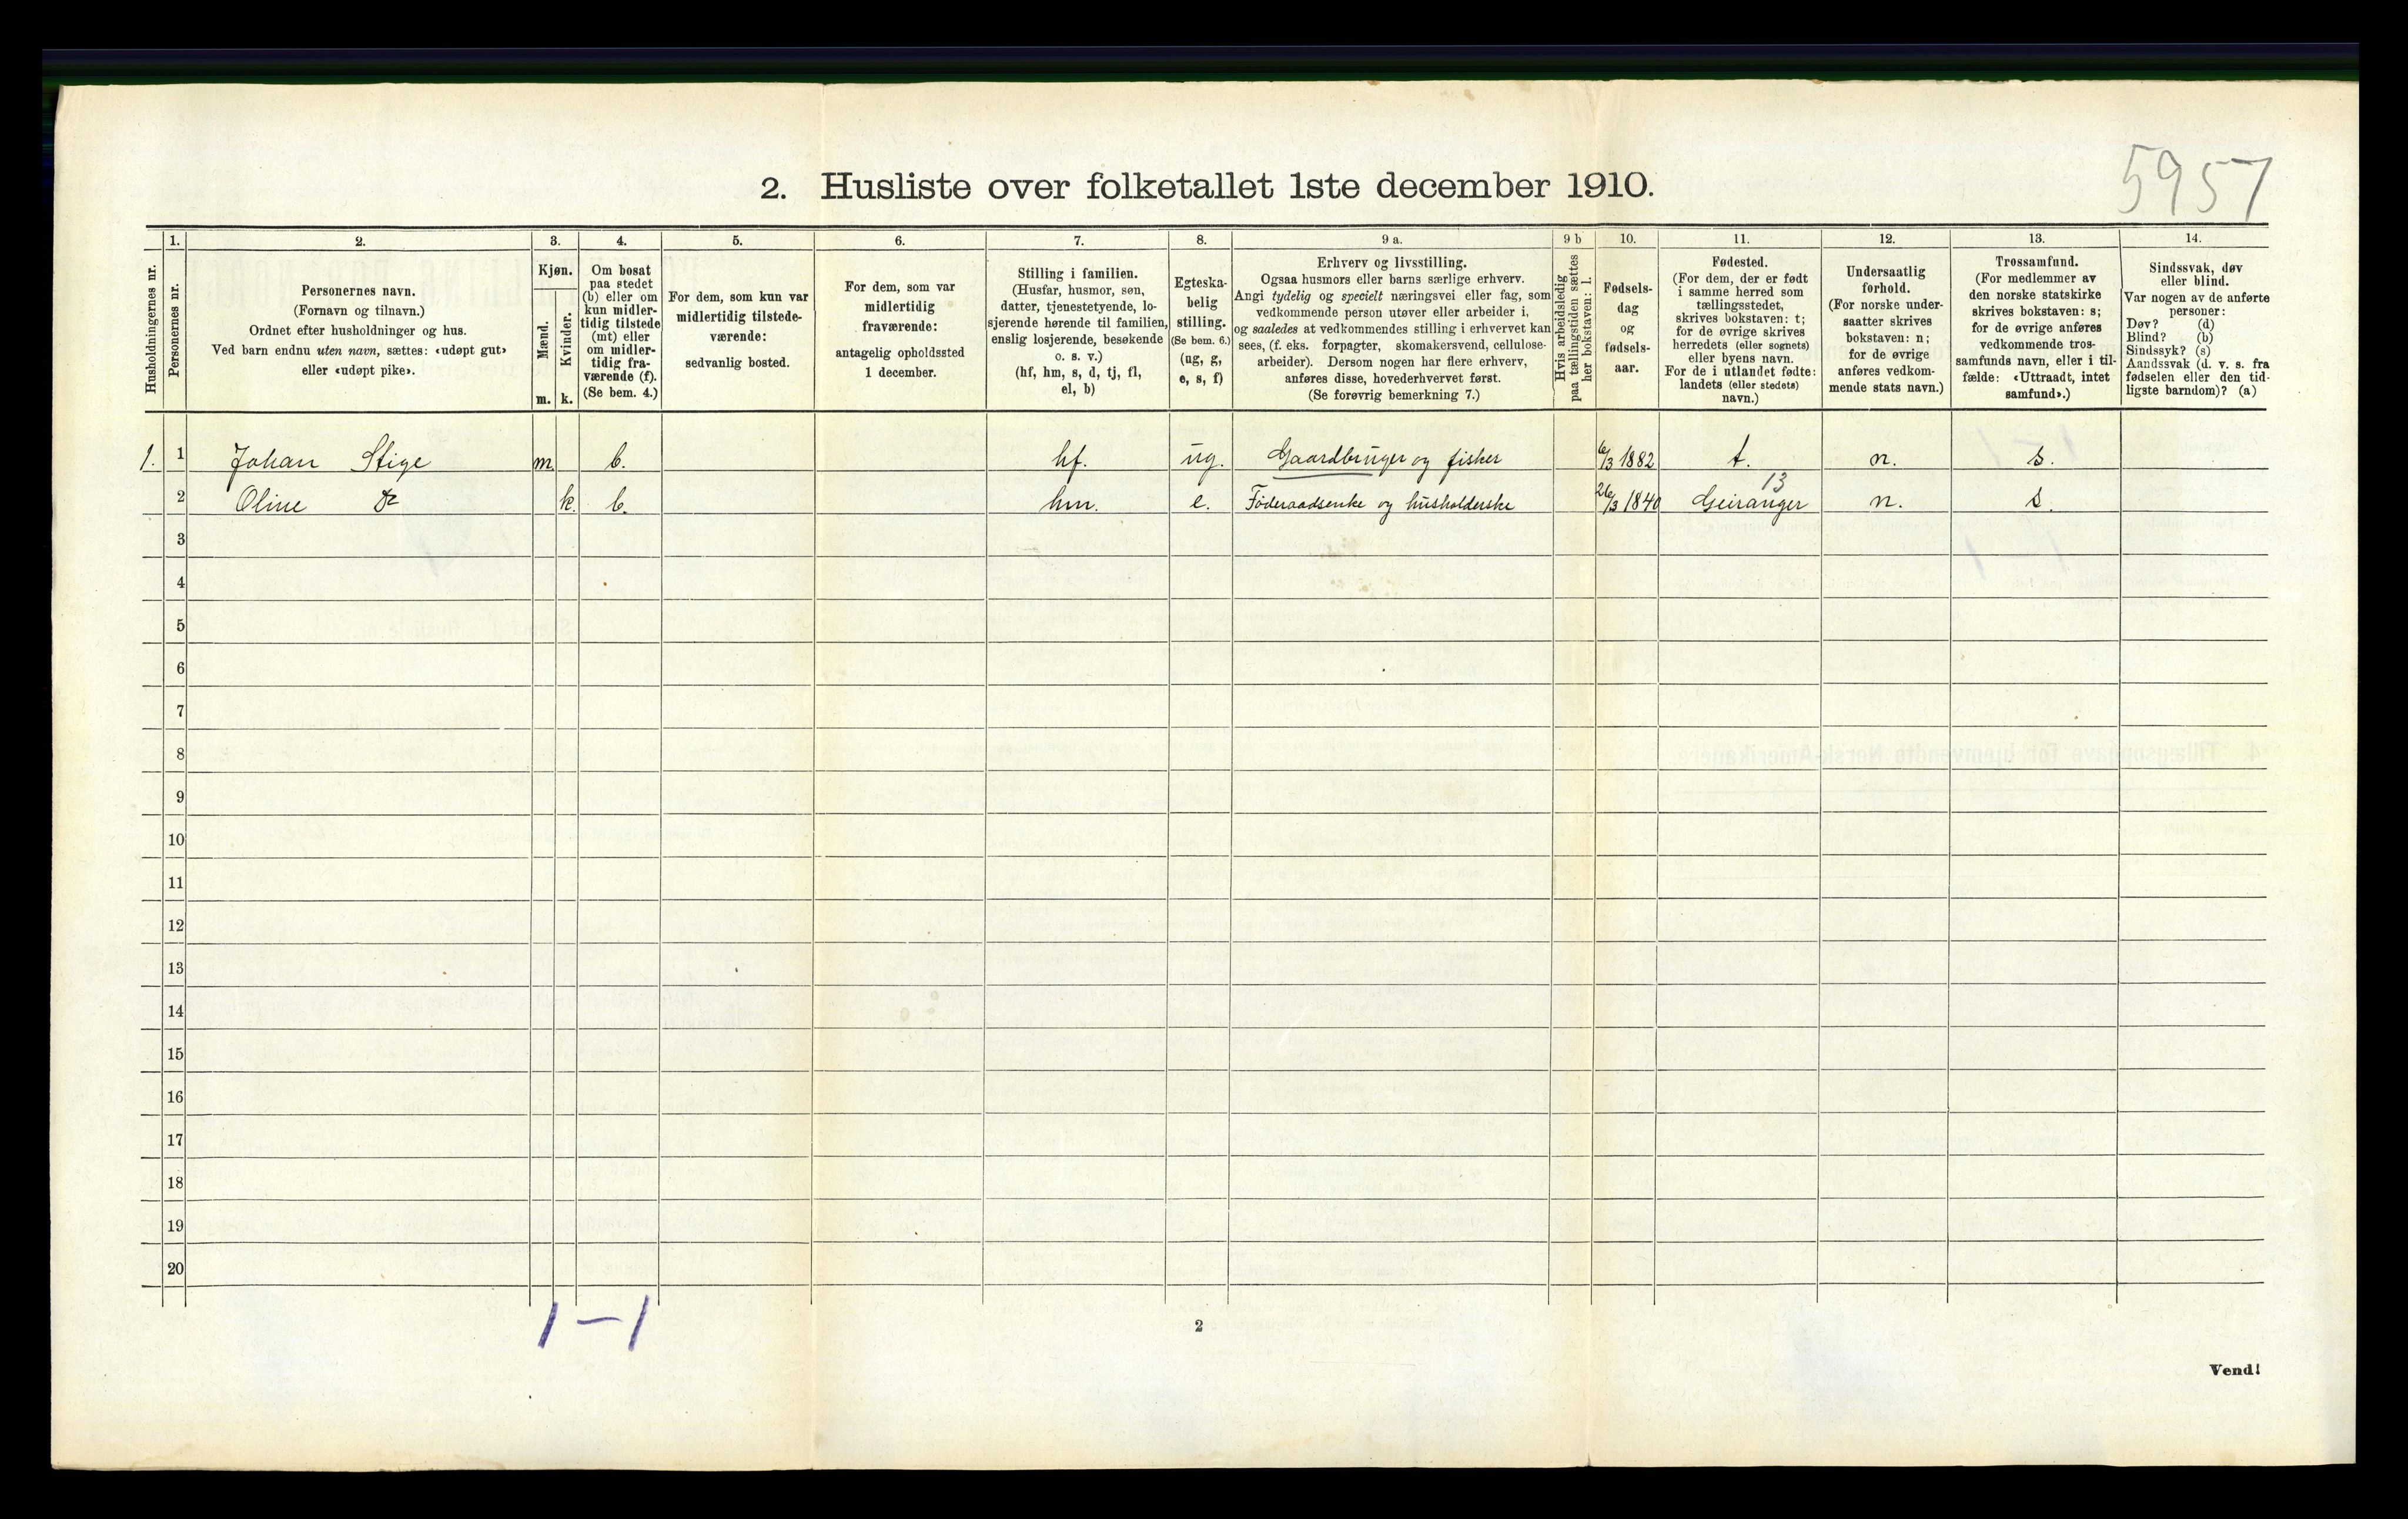 5957
2. Husliste over folketallet 1ste december 1910.
Husholdningernes nr.
1.
Personernes nr.
2.
Personernes navn.
(Fornavn og tilnavn.)
Ordnet efter husholdninger og hus.
Ved barn endnu uten navn, sættes: «udøpt gut»
eller «udøpt pike».
3.
Kjøn.
Mænd.
Kvinder.
m. k.
4.
Om bosat
paa stedet
(b) eller om
kun midler-
tidig tilstede
(mt) eller
om midler-
tidig fra-
værende (f).
(Se bem. 4.)
5.
For dem, som kun var
midlertidig tilstede-
værende:
sedvanlig bosted.
6.
For dem, som var
midlertidig
fraværende:
antagelig opholdssted
1 december.
7.
Stilling i familien.
(Husfar, husmor, søn,
datter, tjenestetyende, lo-
sjerende hørende til familien,
enslig losjerende, besøkende
o. s. v.)
(hf, hm, s, d, tj, fl,
el, b)
8.
Egteska-
belig
stilling.
(Se bem. 6.)
(ug, g,
e, s, f)
9 a.
Erhverv og livsstilling.
Ogsaa husmors eller barns særlige erhverv.
Angi tydelig og specielt næringsvei eller fag, som
vedkommende person utøver eller arbeider i,
og saaledes at vedkommendes stilling i erhvervet kan
sees, (f. eks. forpagter, skomakersvend, cellulose-
arbeider). Dersom nogen har flere erhverv,
anføres disse, hovederhvervet først.
(Se forøvrig bemerkning 7.)
9 b
Hvis arbeidsledig
paa tællingstiden sættes
her bokstaven: l.
10.
Fødsels-
dag
og
fødsels-
aar.
11.
Fødested.
(For dem, der er født
i samme herred som
tællingsstedet,
skrives bokstaven: t;
for de øvrige skrives
herredets (eller sognets)
eller byens navn.
For de i utlandet fødte:
landets (eller stedets)
navn.)
12.
Undersaatlig
forhold.
(For norske under-
saatter skrives
bokstaven: n;
for de øvrige
anføres vedkom-
mende stats navn.)
13.
Trossamfund.
(For medlemmer av
den norske statskirke
skrives bokstaven: s;
for de øvrige anføres
vedkommende tros-
samfunds navn, eller i til-
fælde: «Uttraadt, intet
samfund».)
14.
Sindssvak, døv
eller blind.
Var nogen av de anførte
personer:
Døv? (d)
Blind? (b)
Sindssyk? (s)
Aandssvak (d. v. s. fra
fødselen eller den tid-
ligste barndom)? (a)
1. 1 Johan Stige m. b. hf. ug. Gaardbruger og fisker 6/3 1882 t. n. s.
13
2 Oline Do k. b. hm. e. Føderaadsenke og husholderske 26/3 1840 Geiranger n. s.
3
4
5
6
7
8
9
10
11
12
13
14
15
16
17
18
19
20
1 — 1
2
Vend!